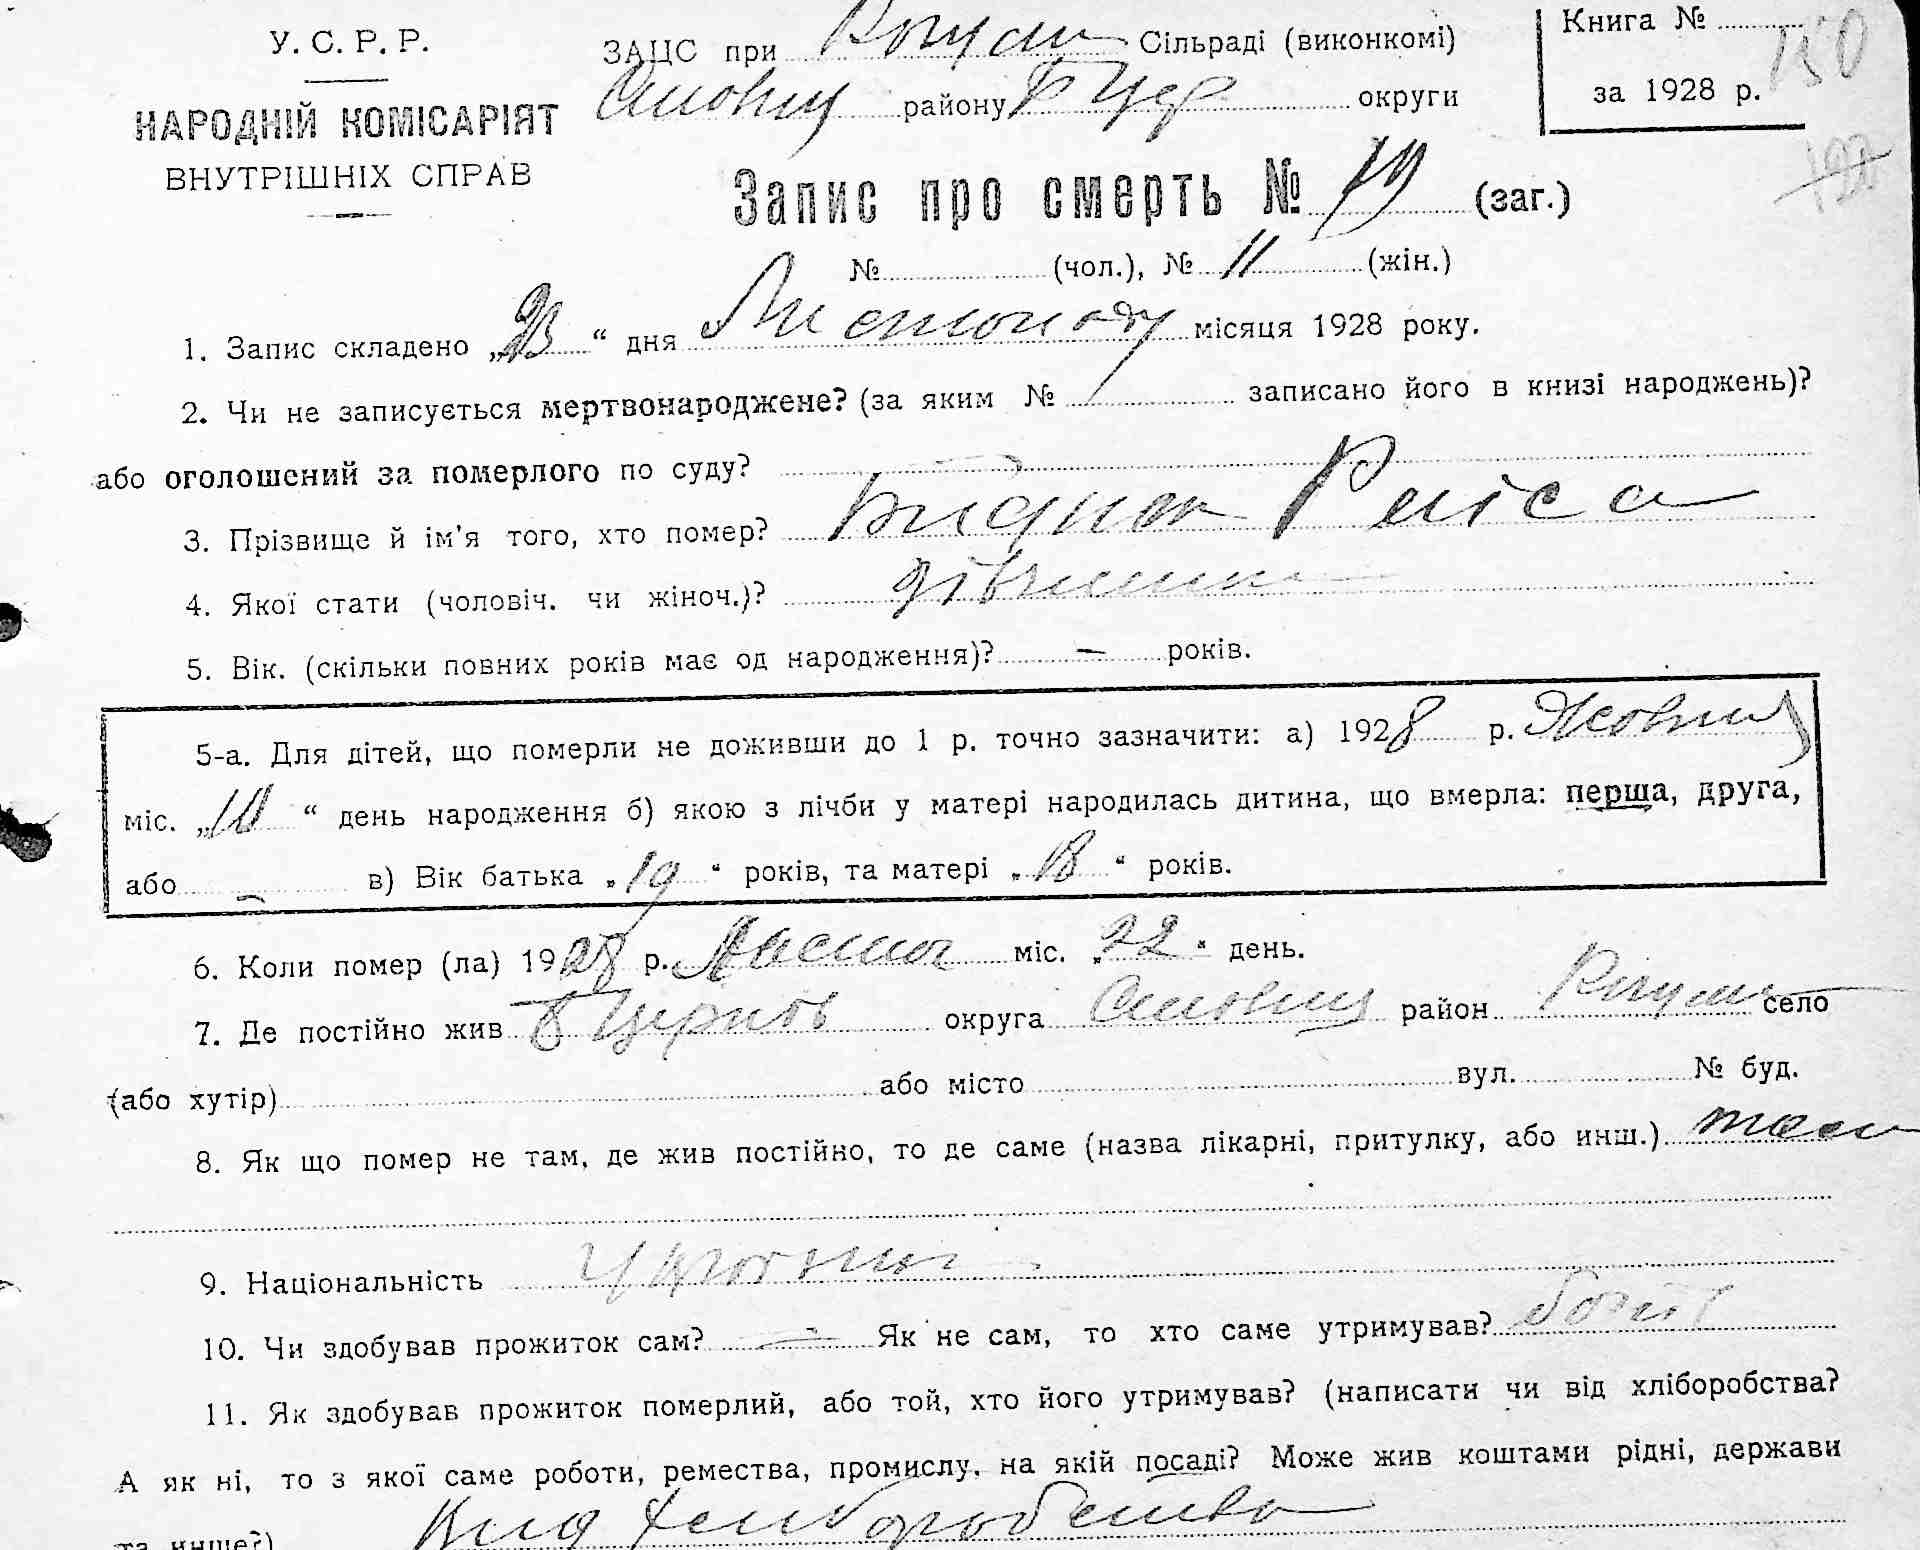 У. С. Р. Р.
НАРОДНІЙ КОМІСАРІЯТ
ВНУТРІШНІХ СПРАВ
ЗАЦС при Сільраді (виконкомі)
району Б Цер округи
Книга №
150
за 1928 р.
Запис про смерть № 19 (заг.)
№ (чол.), № 11 (жін.)
1. Запис складено „23“ дня Листопаду місяця 1928 року.
2. Чи не записується мертвонароджене? (за яким № записано його в книзі народжень)?
або оголошений за померлого по суду?
3. Прізвище й ім'я того, хто помер? Раіса
4. Якої стати (чоловіч. чи жіноч.)? дівчинка
5. Вік. (скільки повних років має од народження)? — років.
5-а. Для дітей, що померли не доживши до 1 р. точно зазначити: а) 1928 р. Жовтня
міс. „10“ день народження б) якою з лічби у матері народилась дитина, що вмерла: перша, друга,
або — в) Вік батька „19“ років, та матері „18“ років.
6. Коли помер (ла) 1928 р. Листоп міс. „22“ день.
7. Де постійно жив Б Церков округа район село
(або хутір) або місто вул. № буд.
8. Як що помер не там, де жив постійно, то де саме (назва лікарні, притулку, або инш.)
9. Національність
10. Чи здобував прожиток сам? — Як не сам, то хто саме утримував?
11. Як здобував прожиток померлий, або той, хто його утримував? (написати чи від хліборобства?
А як ні, то з якої саме роботи, ремества, промислу, на якій посаді? Може жив коштами рідні, держави
та инше?) Вид хліборобства